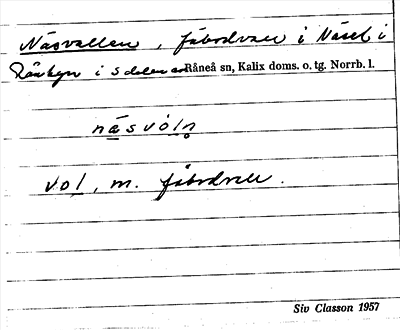 Näsvallen, fäbodvall i Näset i
Rånbyn i s delen av Råneå sn, Kalix doms. o. tg. Norrb. l.
näsvóln
vol, m. fäbodvall.
Siv Classon 1957